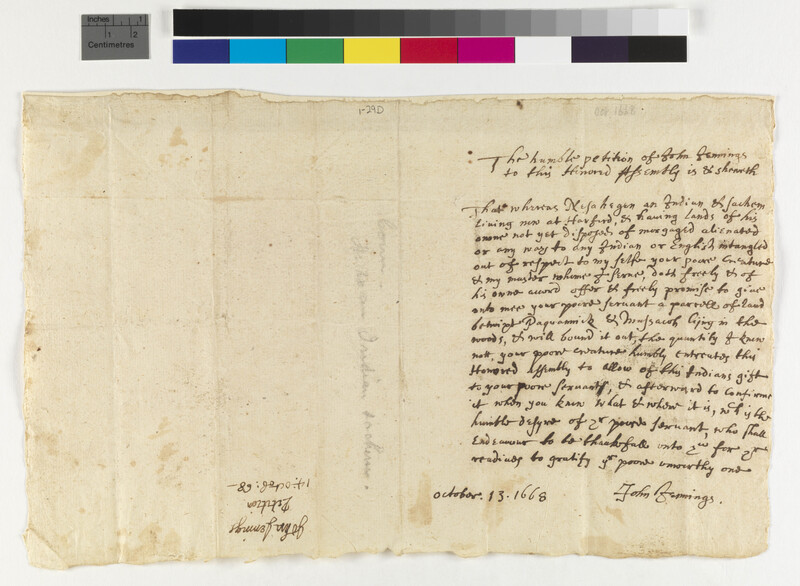 Inches
1
1 2
Centimetres
1-29D
The humble petition of John Jennings
to this Honord Assembly is & sheweth
That whereas Nesahegen an Indian & sachem
living now at Harford, & having lands of his
owne not yet disposed of morgaged alienated
or any ways to any Indian or English intangled
out of respect to my selfe your poore Creature
& my master whome I serve, doth freely & of
his owne accord offer & freely promise to give
unto mee your poore servant a parcell of land
betwixt Paquannick & Massacoh lijng in the
woods, & will bound it out, the quantity I know
not, your poore creature humbly entreates this
Honored Assembly to allow of this Indians gift
to your poore servant, & afterward to confirme
it when you know what & where it is, wch is the
humble desyre of yr poore servant, who shall
Endeavour to be thankfull unto you for yr
readines to gratify yr poore unworthy one
October. 13. 1668 John Jennings.
John Jenings
Petition
14: Octob: 68
Conn.
Indian sachem.